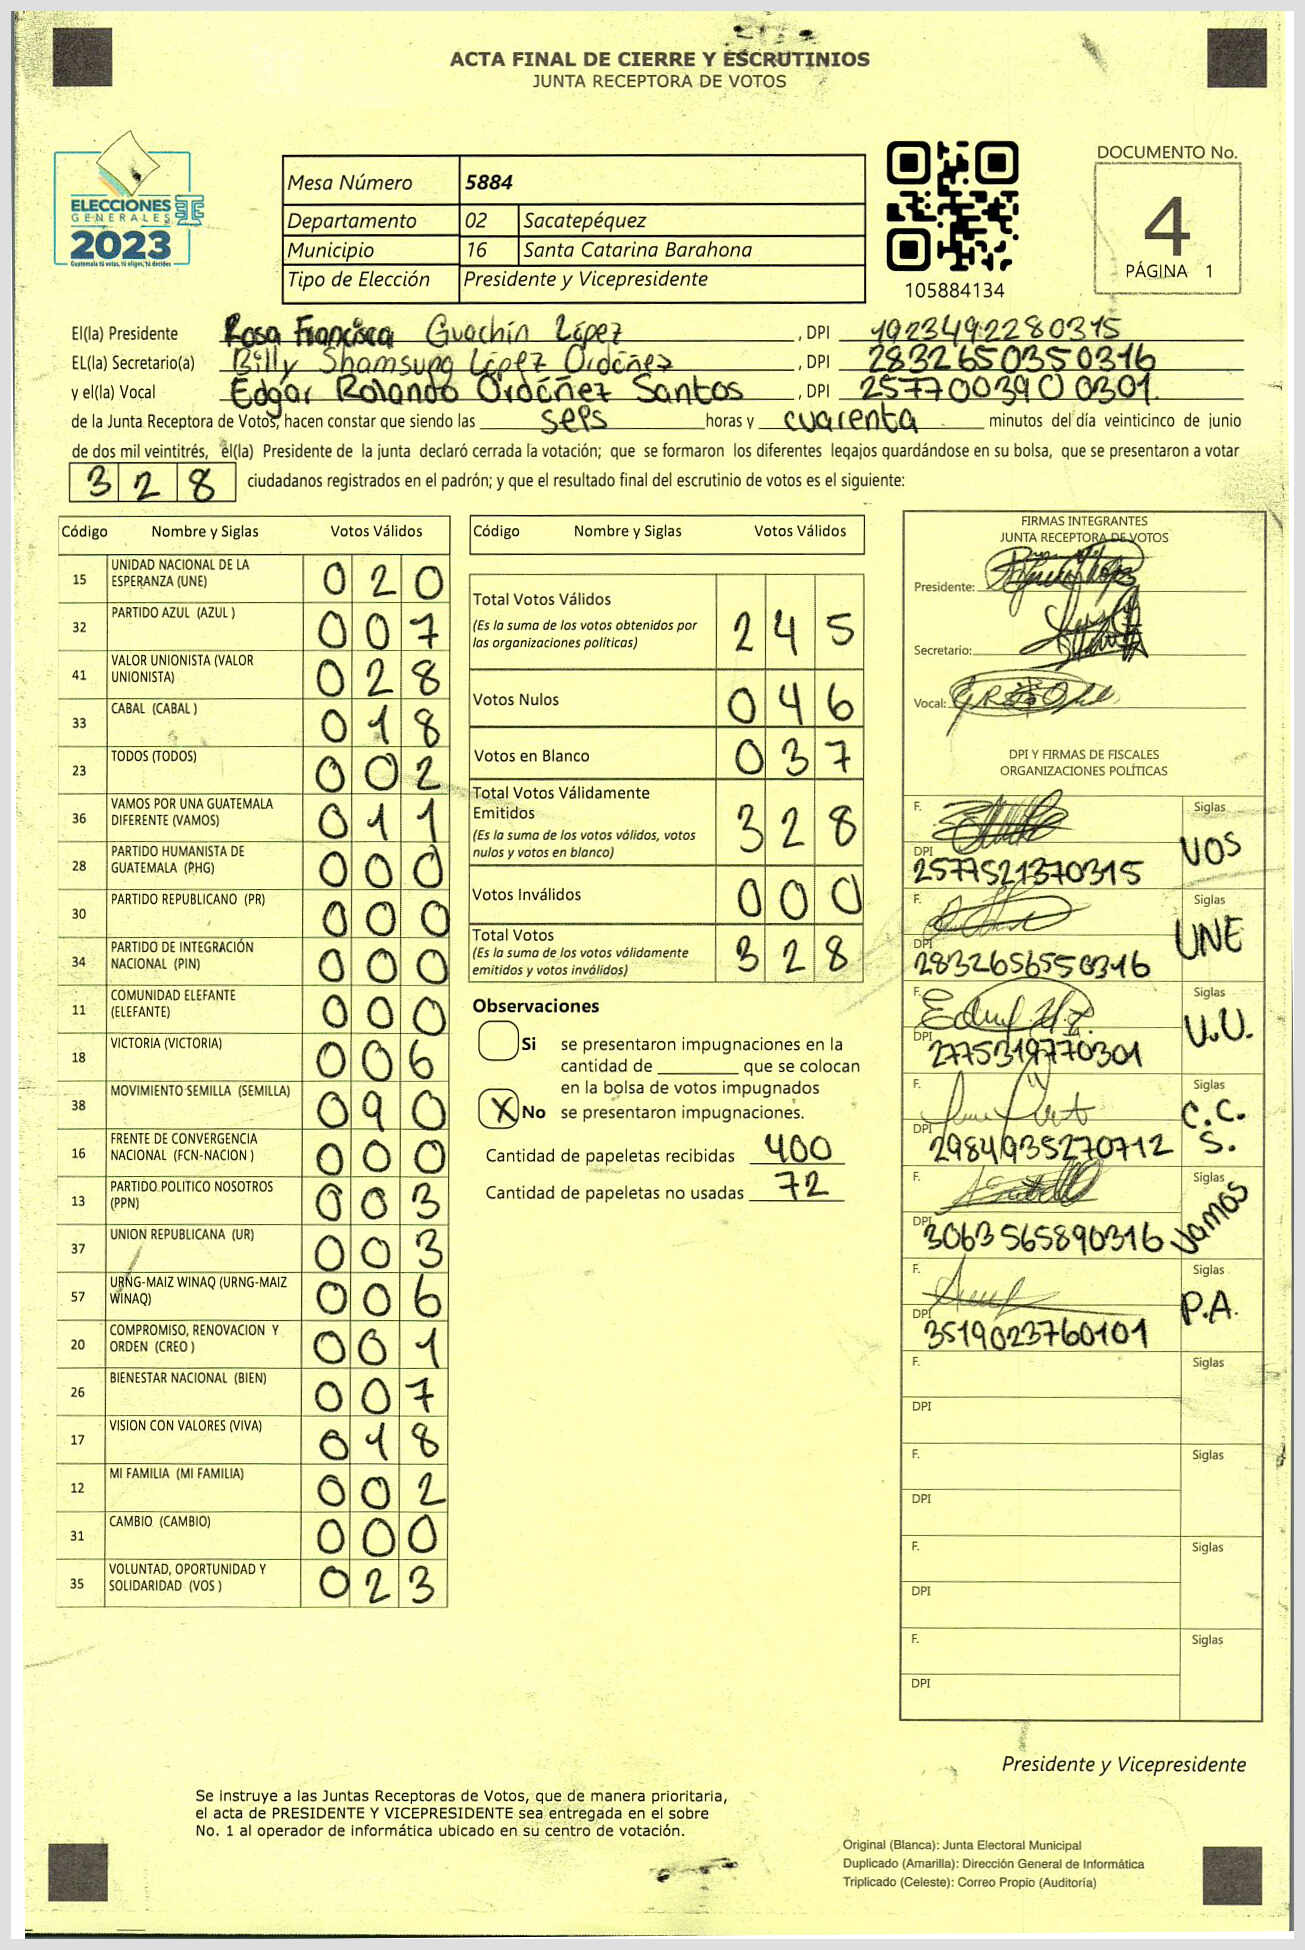 ACTA FINAL DE CIERRE Y ESCRUTINIOS
JUNTA RECEPTORA DE VOTOS
ELECCIONES
GENERALES
2023
Guatemala tú votas, tú eliges, tú decides
Mesa Número 5884
Departamento 02 Sacatepéquez
Municipio 16 Santa Catarina Barahona
Tipo de Elección Presidente y Vicepresidente
105884134
DOCUMENTO No.
4
PÁGINA 1
El(la) Presidente Rosa Francisca Guachín López, DPI 1923492280315
EL(la) Secretario(a) Billy Shamsung López Ordóñez, DPI 2832650350316
y el(la) Vocal Edgar Rolando Ordóñez Santos, DPI 2577003900301
de la Junta Receptora de Votos, hacen constar que siendo las seps horas y cuarenta minutos del día veinticinco de junio
de dos mil veintitrés, el(la) Presidente de la junta declaró cerrada la votación; que se formaron los diferentes legajos guardándose en su bolsa, que se presentaron a votar
328 ciudadanos registrados en el padrón; y que el resultado final del escrutinio de votos es el siguiente:
Código Nombre y Siglas Votos Válidos
15 UNIDAD NACIONAL DE LA ESPERANZA (UNE) 020
32 PARTIDO AZUL (AZUL ) 007
41 VALOR UNIONISTA (VALOR UNIONISTA) 028
33 CABAL (CABAL ) 018
23 TODOS (TODOS) 002
36 VAMOS POR UNA GUATEMALA DIFERENTE (VAMOS) 011
28 PARTIDO HUMANISTA DE GUATEMALA (PHG) 000
30 PARTIDO REPUBLICANO (PR) 000
34 PARTIDO DE INTEGRACIÓN NACIONAL (PIN) 000
11 COMUNIDAD ELEFANTE (ELEFANTE) 000
18 VICTORIA (VICTORIA) 006
38 MOVIMIENTO SEMILLA (SEMILLA) 090
16 FRENTE DE CONVERGENCIA NACIONAL (FCN-NACION ) 000
13 PARTIDO POLITICO NOSOTROS (PPN) 003
37 UNION REPUBLICANA (UR) 003
57 URNG-MAIZ WINAQ (URNG-MAIZ WINAQ) 006
20 COMPROMISO, RENOVACION Y ORDEN (CREO ) 001
26 BIENESTAR NACIONAL (BIEN) 007
17 VISION CON VALORES (VIVA) 018
12 MI FAMILIA (MI FAMILIA) 002
31 CAMBIO (CAMBIO) 000
35 VOLUNTAD, OPORTUNIDAD Y SOLIDARIDAD (VOS ) 023
Código Nombre y Siglas Votos Válidos
Total Votos Válidos 245
(Es la suma de los votos obtenidos por
las organizaciones políticas)
Votos Nulos 046
Votos en Blanco 037
Total Votos Válidamente
Emitidos 328
(Es la suma de los votos válidos, votos
nulos y votos en blanco)
Votos Inválidos 000
Total Votos 328
(Es la suma de los votos válidamente
emitidos y votos inválidos)
Observaciones
Si se presentaron impugnaciones en la
cantidad de ________ que se colocan
en la bolsa de votos impugnados
X No se presentaron impugnaciones.
Cantidad de papeletas recibidas 400
Cantidad de papeletas no usadas 72
FIRMAS INTEGRANTES
JUNTA RECEPTORA DE VOTOS
Presidente:
Secretario:
Vocal:
DPI Y FIRMAS DE FISCALES
ORGANIZACIONES POLÍTICAS
F. Siglas VOS
DPI 2577521370315
F. Siglas UNE
DPI 2832656550316
F. Siglas U.U.
DPI 2775319770301
F. Siglas C.C.
S.
DPI 2984935270712
F. Siglas Vamos
DPI 3063565890316
F. Siglas P.A.
DPI 3519023760101
F. Siglas
DPI
F. Siglas
DPI
F. Siglas
DPI
F. Siglas
DPI
Presidente y Vicepresidente
Se instruye a las Juntas Receptoras de Votos, que de manera prioritaria,
el acta de PRESIDENTE Y VICEPRESIDENTE sea entregada en el sobre
No. 1 al operador de informática ubicado en su centro de votación.
Original (Blanca): Junta Electoral Municipal
Duplicado (Amarilla): Dirección General de Informática
Triplicado (Celeste): Correo Propio (Auditoría)